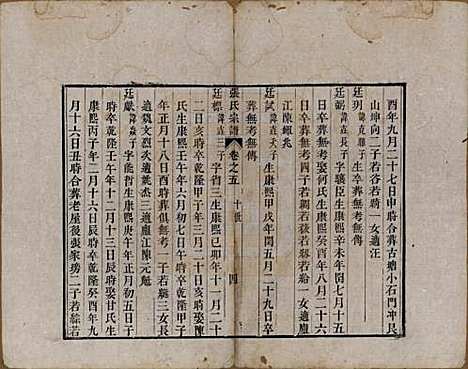 酉年九月二十七日申時合葬古塘小石門冲艮
山坤向二子若谷若時一女適汪
廷珝諱克勝子生卒葬無考無傳
廷弼諱垚長子字襄臣生康熙辛未年閏七月十五
日卒葬無考娶何氏生康熙癸酉年八月二十六
日卒葬無考四子若綱若後若縣若洛一女適閏
江陳蛾兆
廷試諱垚次子生康熙甲戌年閏五月二十九日卒
葬無考無傳
張氏宗譜 卷之五 十世 四
廷標諱垚三子字首三生康熙己卯年十一月二十
二日亥時卒乾隆甲子年三月二十日亥時娶陳
氏生康熙壬午年六月初七日辰時卒乾隆甲子
年五月十八日酉時葬俱無考一子若爵三女長
適魏文烈次適姚杰三適廬江陳元勉
廷獻諱垚長子字能哲生康熙庚午年正月初五日子
時卒乾隆壬午年十二月十三日辰時娶甘氏生
康熙丙子年二月十六日亥時卒乾隆癸酉年九
月十六日丑時合葬老屋後張家塝二子若綜若